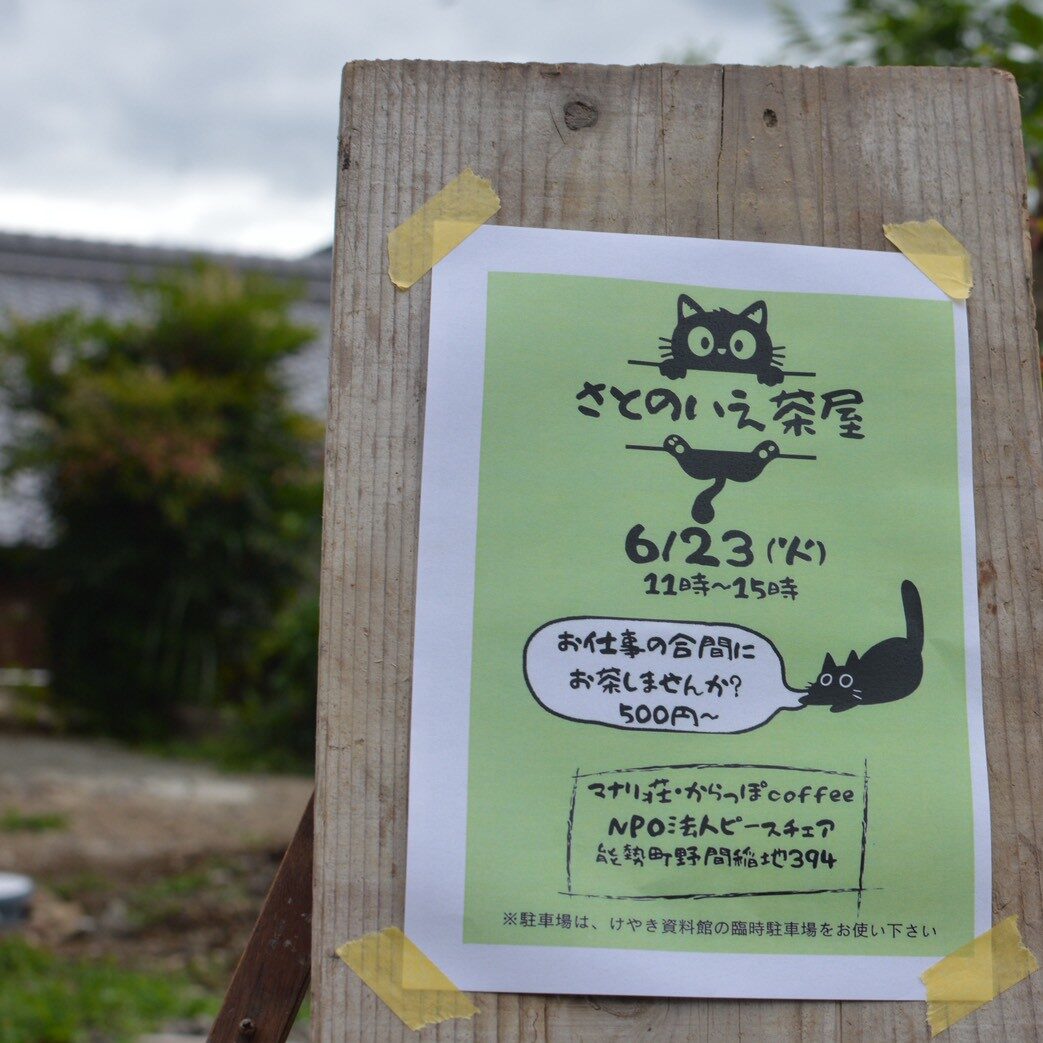 さとのいえ茶屋
6/23(火)
11時～15時
お仕事の合間に
お茶しませんか?
500円～
マナリ荘・からっぽcoffee
NPO法人ピースチェア
能勢町野間稲地394
※駐車場は、けやき資料館の臨時駐車場をお使い下さい